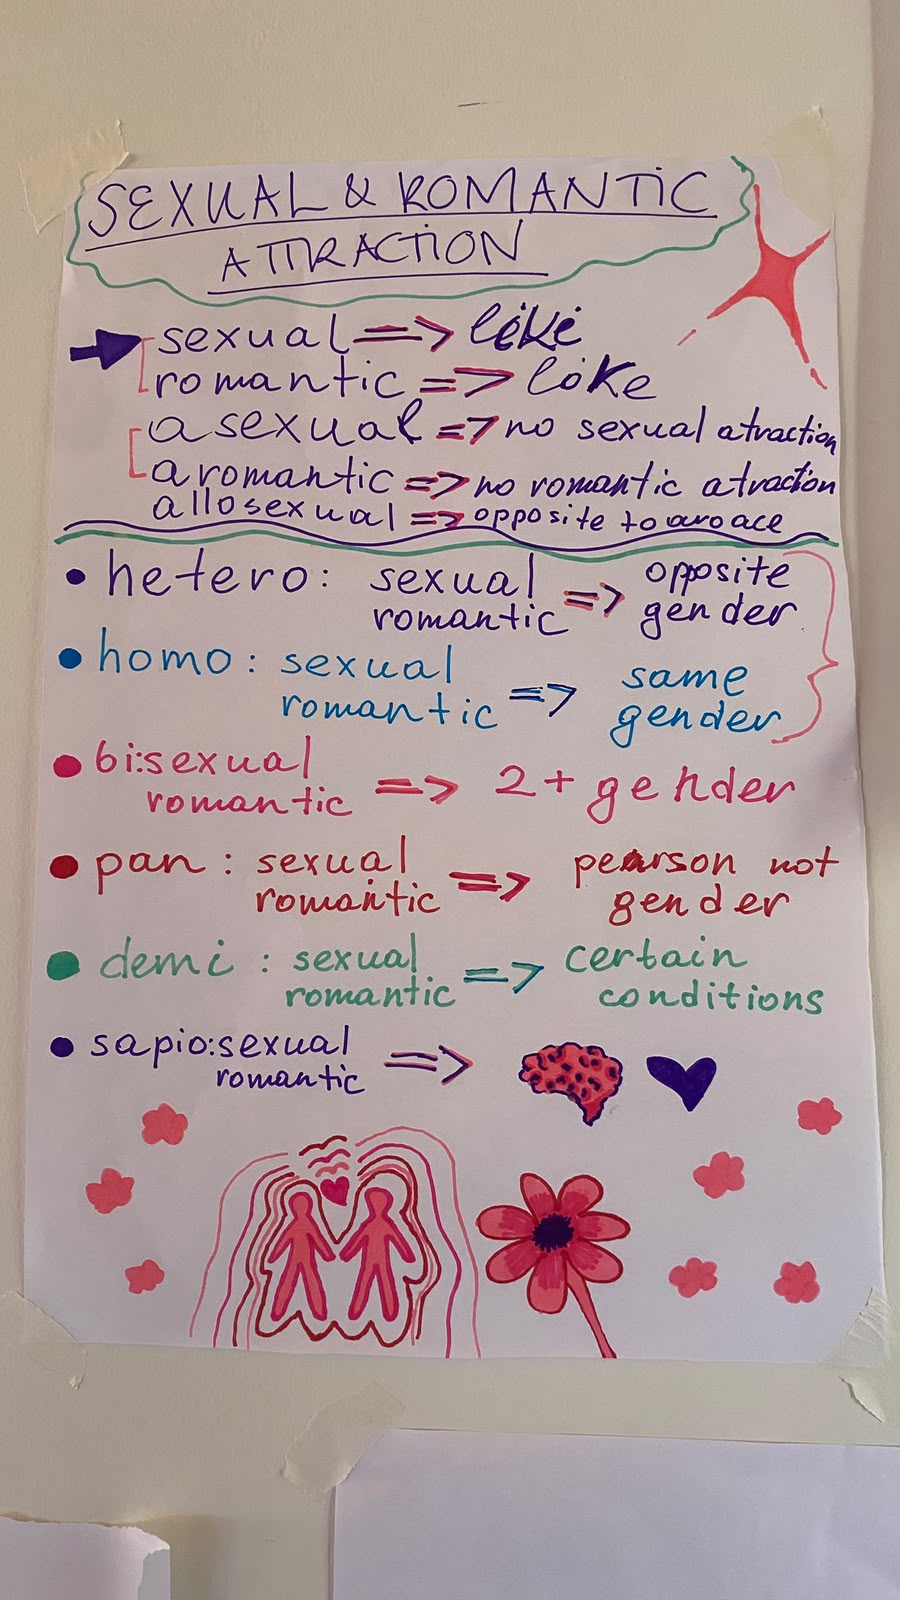 SEXUAL & ROMANTIC
ATTRACTION
sexual => like
romantic => like
asexual => no sexual atraction
aromantic => no romantic atraction
allosexual => opposite to aro ace
• hetero: sexual romantic => opposite gender
• homo: sexual romantic => same gender
• bi:sexual romantic => 2+ gender
• pan: sexual romantic => pearson not gender
• demi: sexual romantic => certain conditions
• sapio:sexual romantic =>